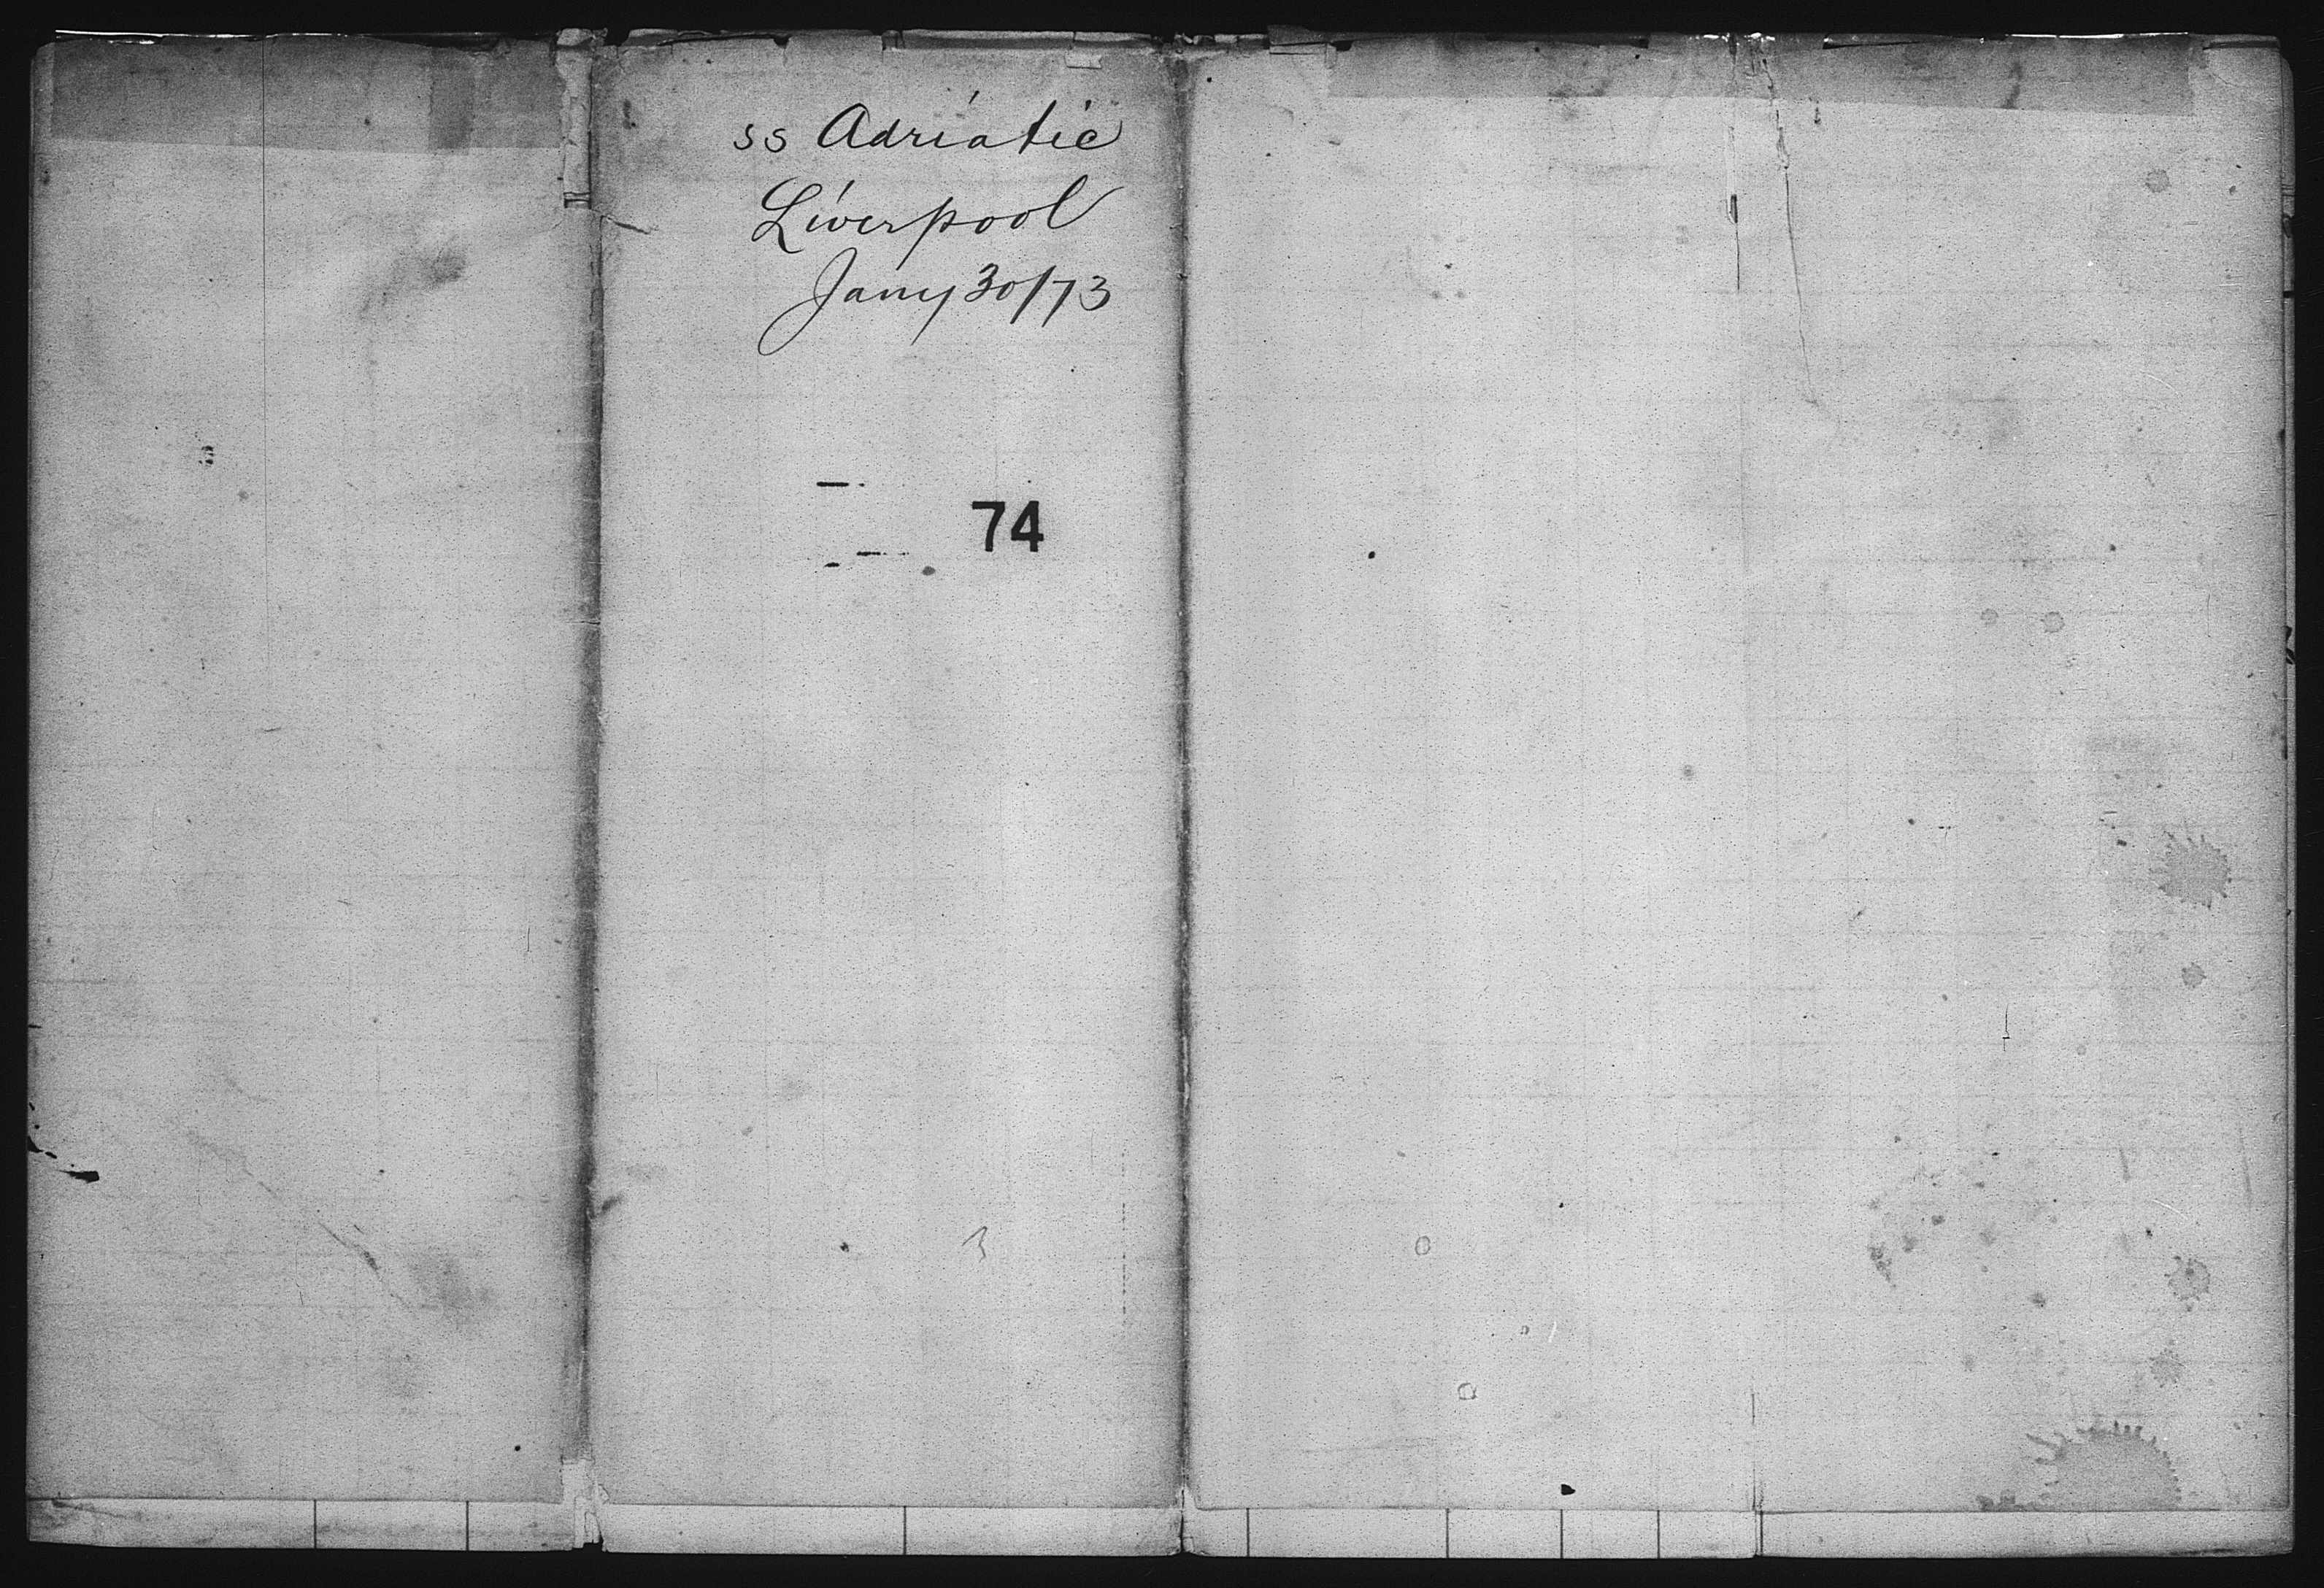 ss Adriatic
Liverpool
Jany 30/73
74